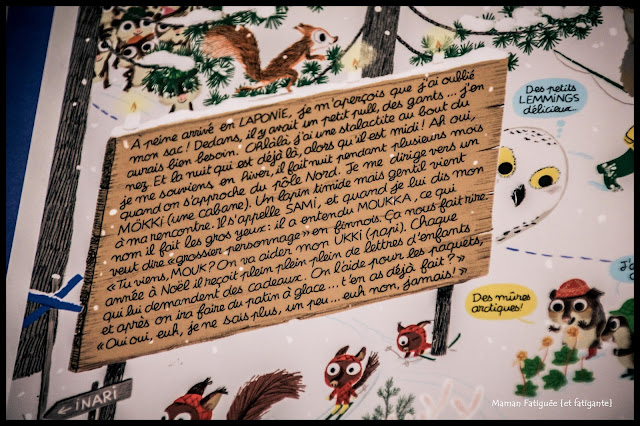 A peine arrivé en LAPONIE, je m'aperçois que j'ai oublié
mon sac! Dedans, il y avait un petit pull, des gants... j'en
aurais bien besoin. Ohlàlà, j'ai une stalactite au bout du
nez. Et la nuit qui est déjà là, alors qu'il est midi! Ah oui,
je me souviens en hiver, il fait nuit pendant plusieurs mois
quand on s'approche du pôle Nord. Je me dirige vers un
MÖKKi (une cabane). Un lapin timide mais gentil vient
à ma rencontre. Il s'appelle SAMi, et quand je lui dis mon
nom il fait les gros yeux: il a entendu MOUKKA, ce qui
veut dire «grossier personnage» en finnois. Ça nous fait rire.
«Tu viens, MOUK? On va aider mon UKKi (papi). Chaque
année à Noël il reçoit plein plein plein de lettres d'enfants
qui lui demandent des cadeaux. On l'aide pour les paquets,
et après on ira faire du patin à glace... t'en as déjà fait?»
«Oui oui, euh, je ne sais plus, un peu... euh non, jamais!»
Des petits
LEMMINGS
délicieux.
Des mûres
arctiques!
J'a
iNARi
Maman Fatiguée {et fatigante}